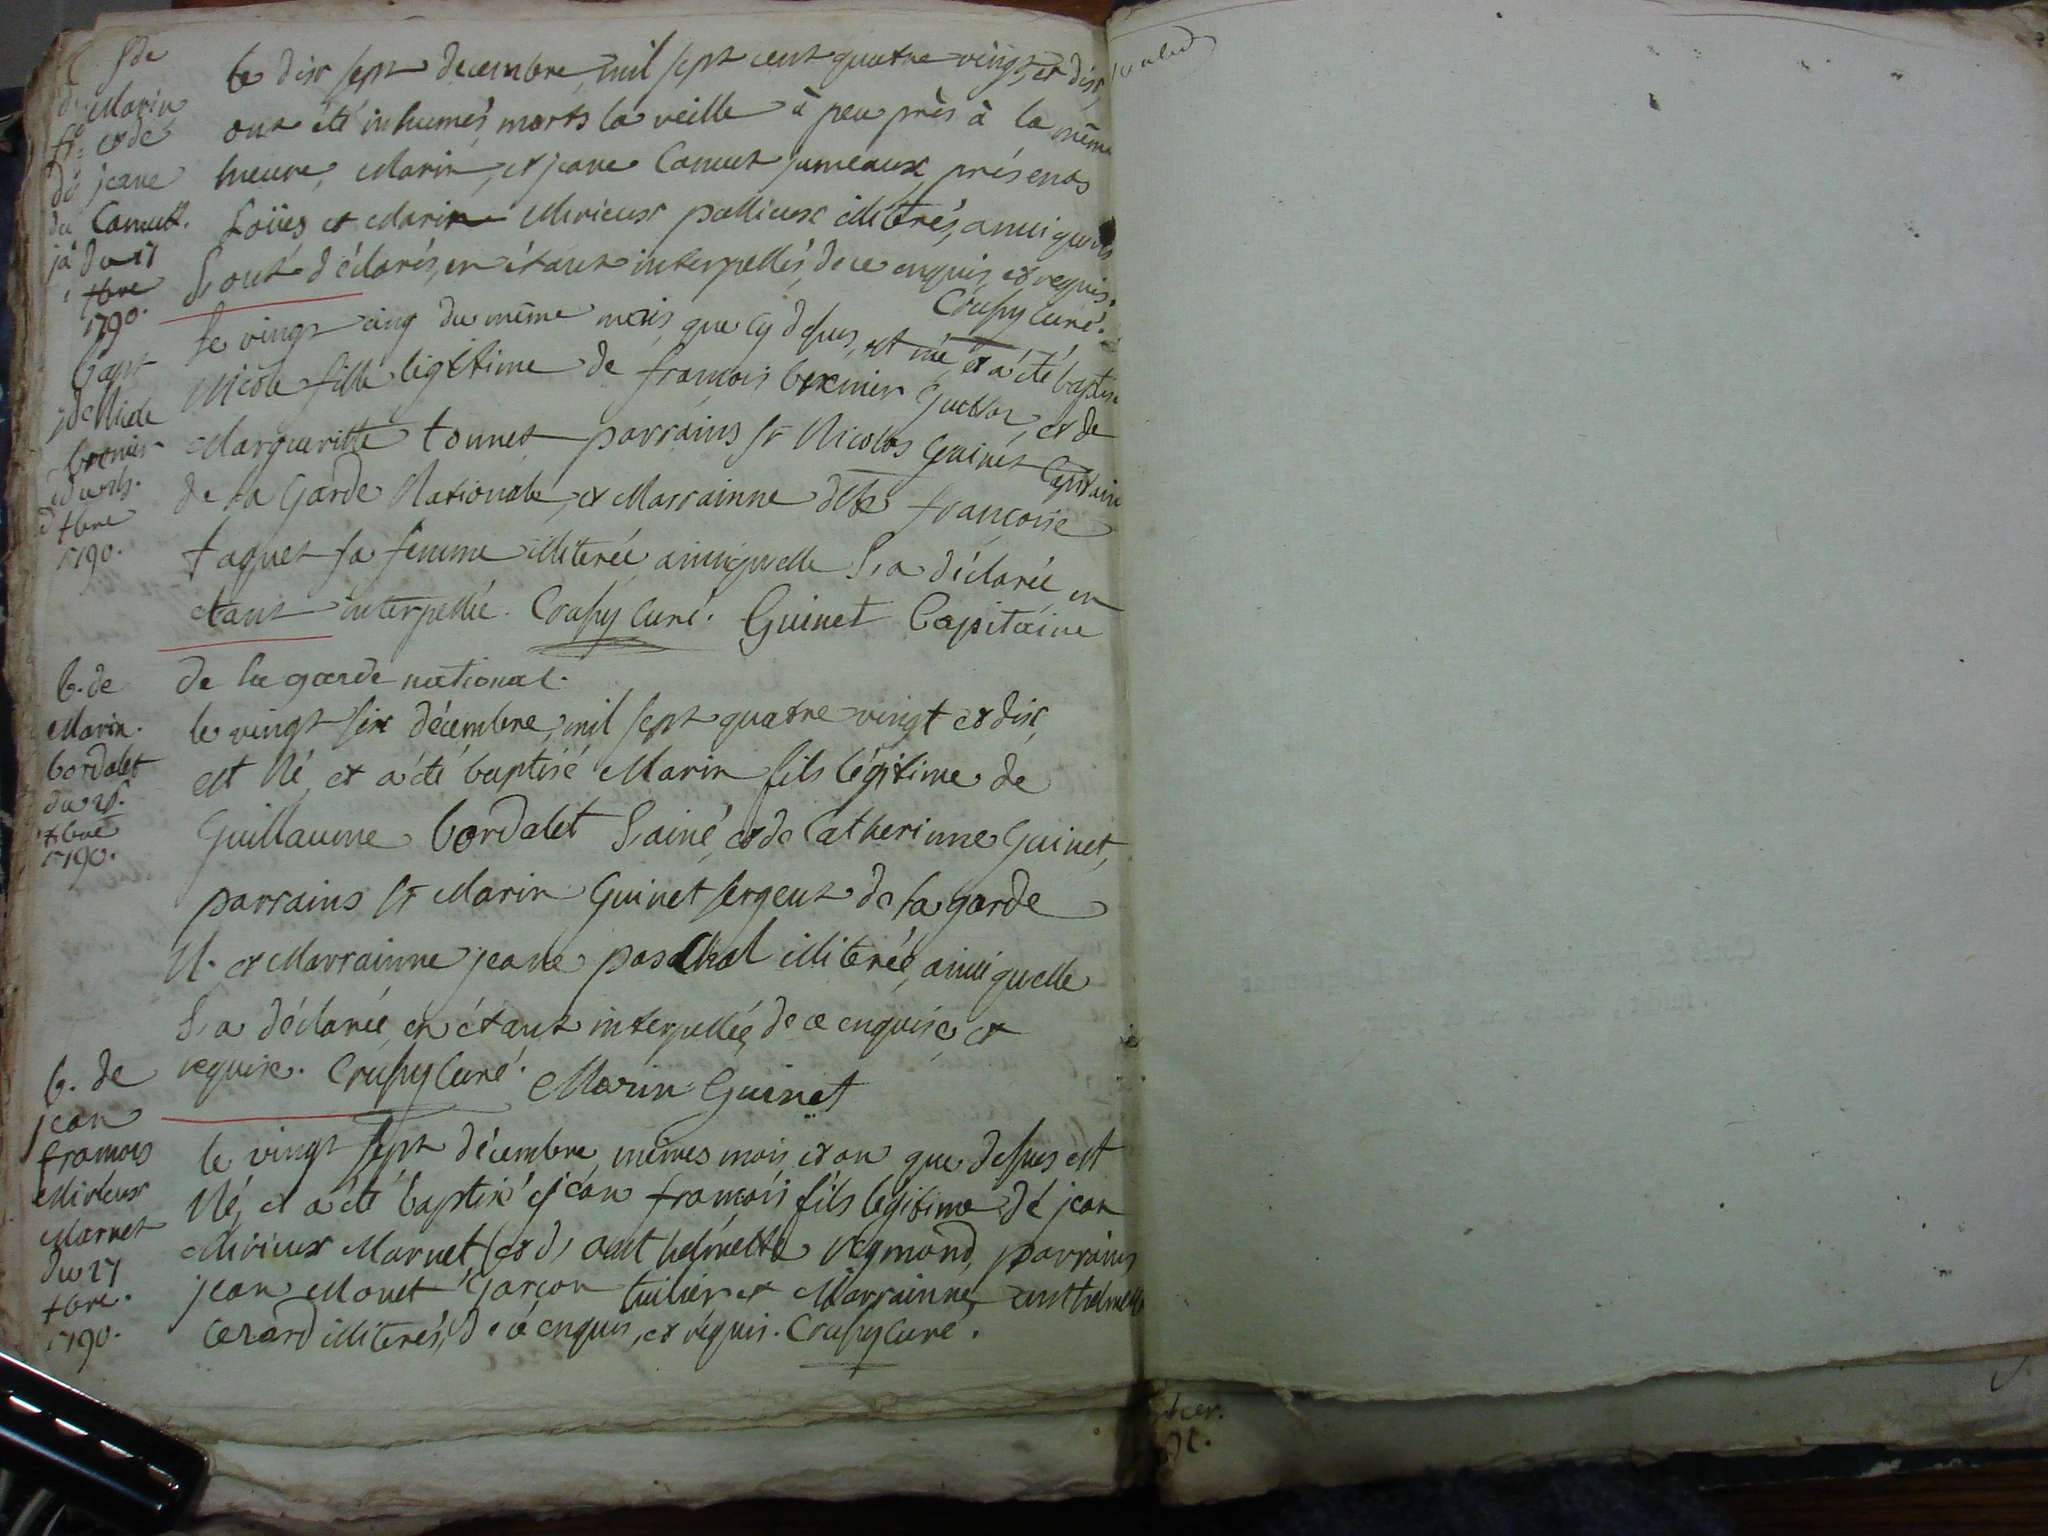 Sde
Marin
et de
jeane
Camut.
du 17
xbre
1790.
le dix sept decembre, mil sept cent quatre vingt, et dix,
ont été inhumés, morts la veille à peu près à la même
heure, Marin, et jeane Camut jumeaux, présents
Loües et Marin Mirieux illiterés, ainsi qu'ils
L'ont déclarés, en étant interpellés, de ce enquis, et requis.
Crussy Curé.
bapt
de Nicole
bermier
du 25.
xbre
1790.
le vingt cinq du même mois, que cy dessus, est née, et a été baptisée
Nicole fille legitime de françois bermier et de
Margueritte tonnet parrains Sr Nicolas Guinet Capitaine
de la Garde Nationale, et Marrainne françoise
taquet sa femme illiterée, ainsi quelle L'a déclarée, en
etant interpellée. Crussy Curé. Guinet Capitaine
de la garde national.
b. de
Marin.
bordalet
du 26.
xbre
1790.
le vingt six décembre, mil sept quatre vingt et dix,
est Né, et a été baptisé Marin fils légitime de
Guillaume bordalet L'ainé, et de Catherinne Guinet,
parrains Sr Marin Guinet sergent de la garde
N. et Marrainne jeane paschal illiterée, ainsi quelle
L'a déclarée, en étant interpellée, de ce enquise, et
requise. Crussy Curé. Marin Guinet
b. de
jean
francois
Mirieux
Marnet
du 27
xbre.
1790.
le vingt sept décembre, mêmes mois, et an que dessus est
Né, et a été baptisé jean françois fils legitime de jean
Mirieux Marnet, et d'anthelmette reymond, parrains
jean Monet Garçon tuilier et Marrainne, anthelmette
illiterés, de ce enquis, et réquis. Crussy Curé.